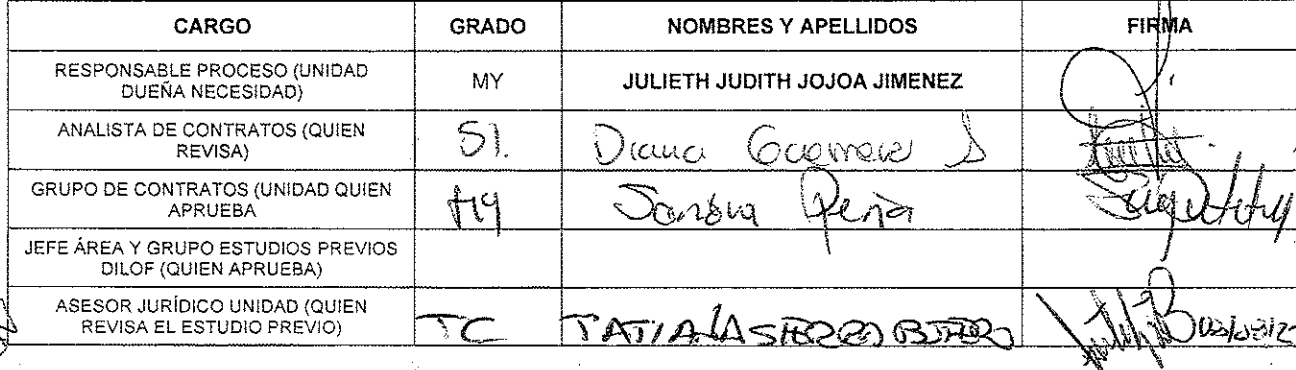 CARGO GRADO NOMBRES Y APELLIDOS FIRMA
RESPONSABLE PROCESO (UNIDAD
DUEÑA NECESIDAD) MY JULIETH JUDITH JOJOA JIMENEZ
ANALISTA DE CONTRATOS (QUIEN
REVISA) SI. Diana S
GRUPO DE CONTRATOS (UNIDAD QUIEN
APRUEBA MY Sandra Peña
JEFE ÁREA Y GRUPO ESTUDIOS PREVIOS
DILOF (QUIEN APRUEBA)
ASESOR JURÍDICO UNIDAD (QUIEN
REVISA EL ESTUDIO PREVIO) TC TATIANA